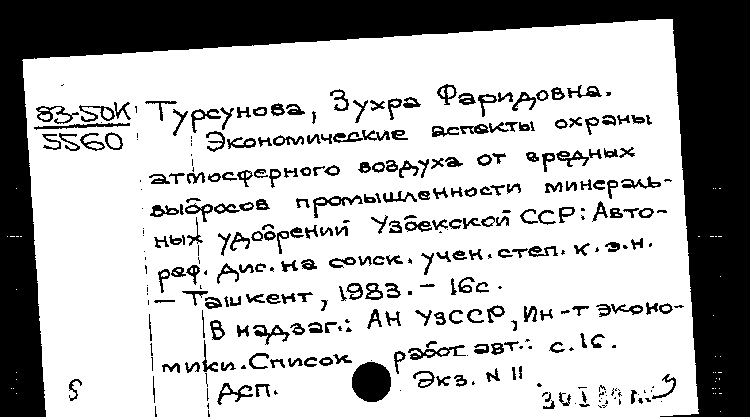 83-50К
5560
Турсунова, Зухра Фаридовна.
Экономические аспекты охраны
атмосферного воздуха от вредных
выбросов промышленности минераль-
ных удобрений Узбекской ССР: Авто-
реф. дис. на соиск. учен. степ. к.э.н.
— Ташкент, 1983. — 16с.
В надзаг.: АН УзССР, Ин-т эконо-
мики. Список работ авт.: с.16.
Асп. Экз. N 11.